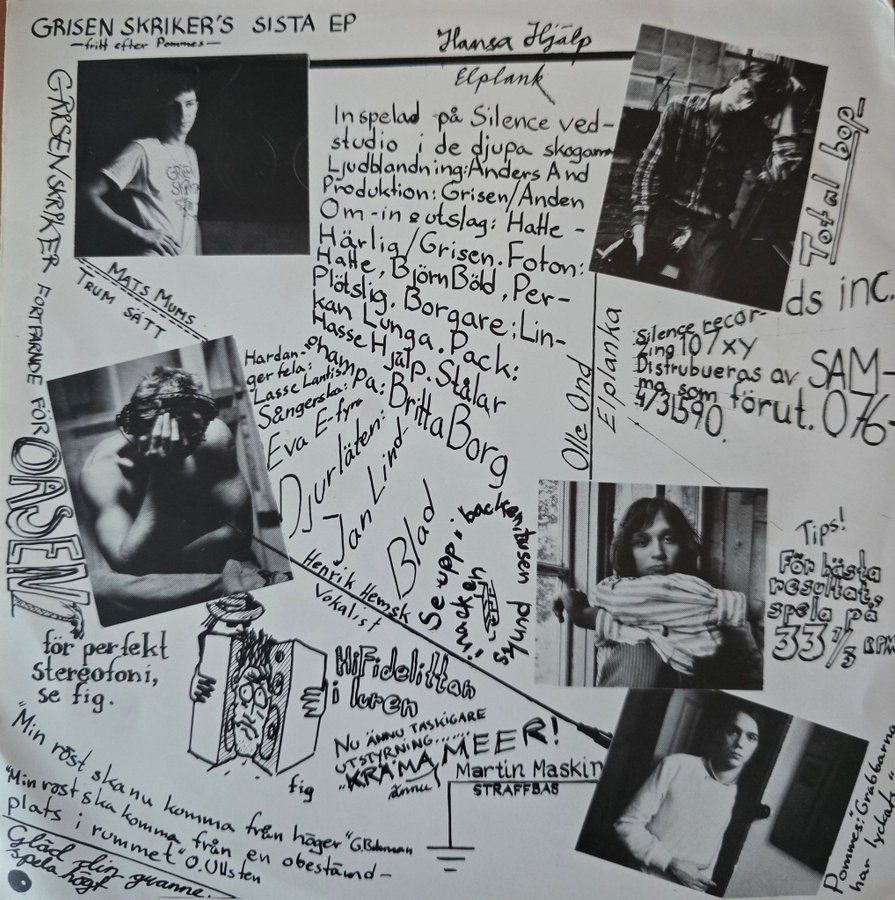 GRISEN SKRIKER'S SISTA EP
—fritt efter Pommes—
Hansa Hjälp
Elplank
GRISEN SKRIKER FORTFARANDE FÖR OASEN!
Inspelad på Silence ved-
studio i de djupa skogarna
Ljudblandning: Anders And
Produktion: Grisen/Anden
Om-in & utslag: Hatte-
Härlig/Grisen. Foton:
Hatte, Björn Böld, Per-
Plötslig. Borgare: Lin-
kan Lunga. Pack:
Hasse Hjälp. Stålar
Britta Borg
Total bop-
MATS MUMS
TRUM SÄTT
Hardan-
gerfela:
Lasse Lantism
Sångerska:
Eva E-fyra
Djurläten:
Jan Lind-
Blad
Olle Ond
Elplanka
Silence recor-
ds inc.
ding 107xy
Distrubueras av SAM-
ma som förut. 076-
4/31590.
Se upp i backen
backenitusen punks
Henrik Hemsk
Vokalist
Tips!
För bästa
resultat,
spela på
33 1/3 RPM
för perfekt
stereofoni,
se fig.
HiFidelittan
i luren
fig
NU ÄNNU TASKIGARE
UTSTYRNING......
"KRÄMA MEER!
ännu
Martin Maskin
STRAFFBAS
"Min röst ska nu komma från höger" G. Bohman
"Min röst ska komma från en obestämd-
plats i rummet" O. Ullsten
Gläd din granne.
spela högt
Pommes: "Grabbarna
har lyckats"